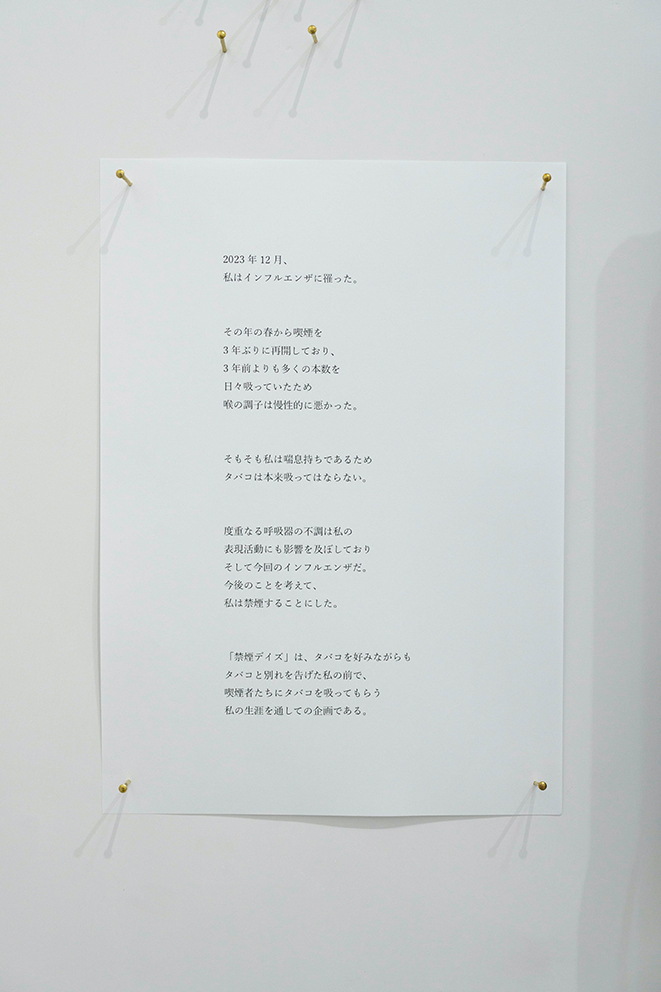 2023 年 12 月、
私はインフルエンザに罹った。
その年の春から喫煙を
3 年ぶりに再開しており、
3 年前よりも多くの本数を
日々吸っていたため
喉の調子は慢性的に悪かった。
そもそも私は喘息持ちであるため
タバコは本来吸ってはならない。
度重なる呼吸器の不調は私の
表現活動にも影響を及ぼしており
そして今回のインフルエンザだ。
今後のことを考えて、
私は禁煙することにした。
「禁煙デイズ」は、タバコを好みながらも
タバコと別れを告げた私の前で、
喫煙者たちにタバコを吸ってもらう
私の生涯を通しての企画である。